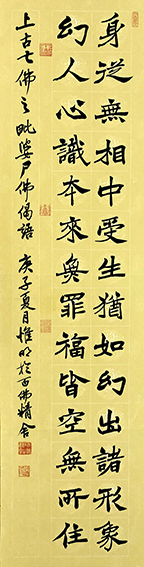 身從無相中受生猶如幻出諸形象
幻人心識本來無罪福皆空無所住
上古七佛之毗婆尸佛偈語 庚子夏月惟明於百佛精舍